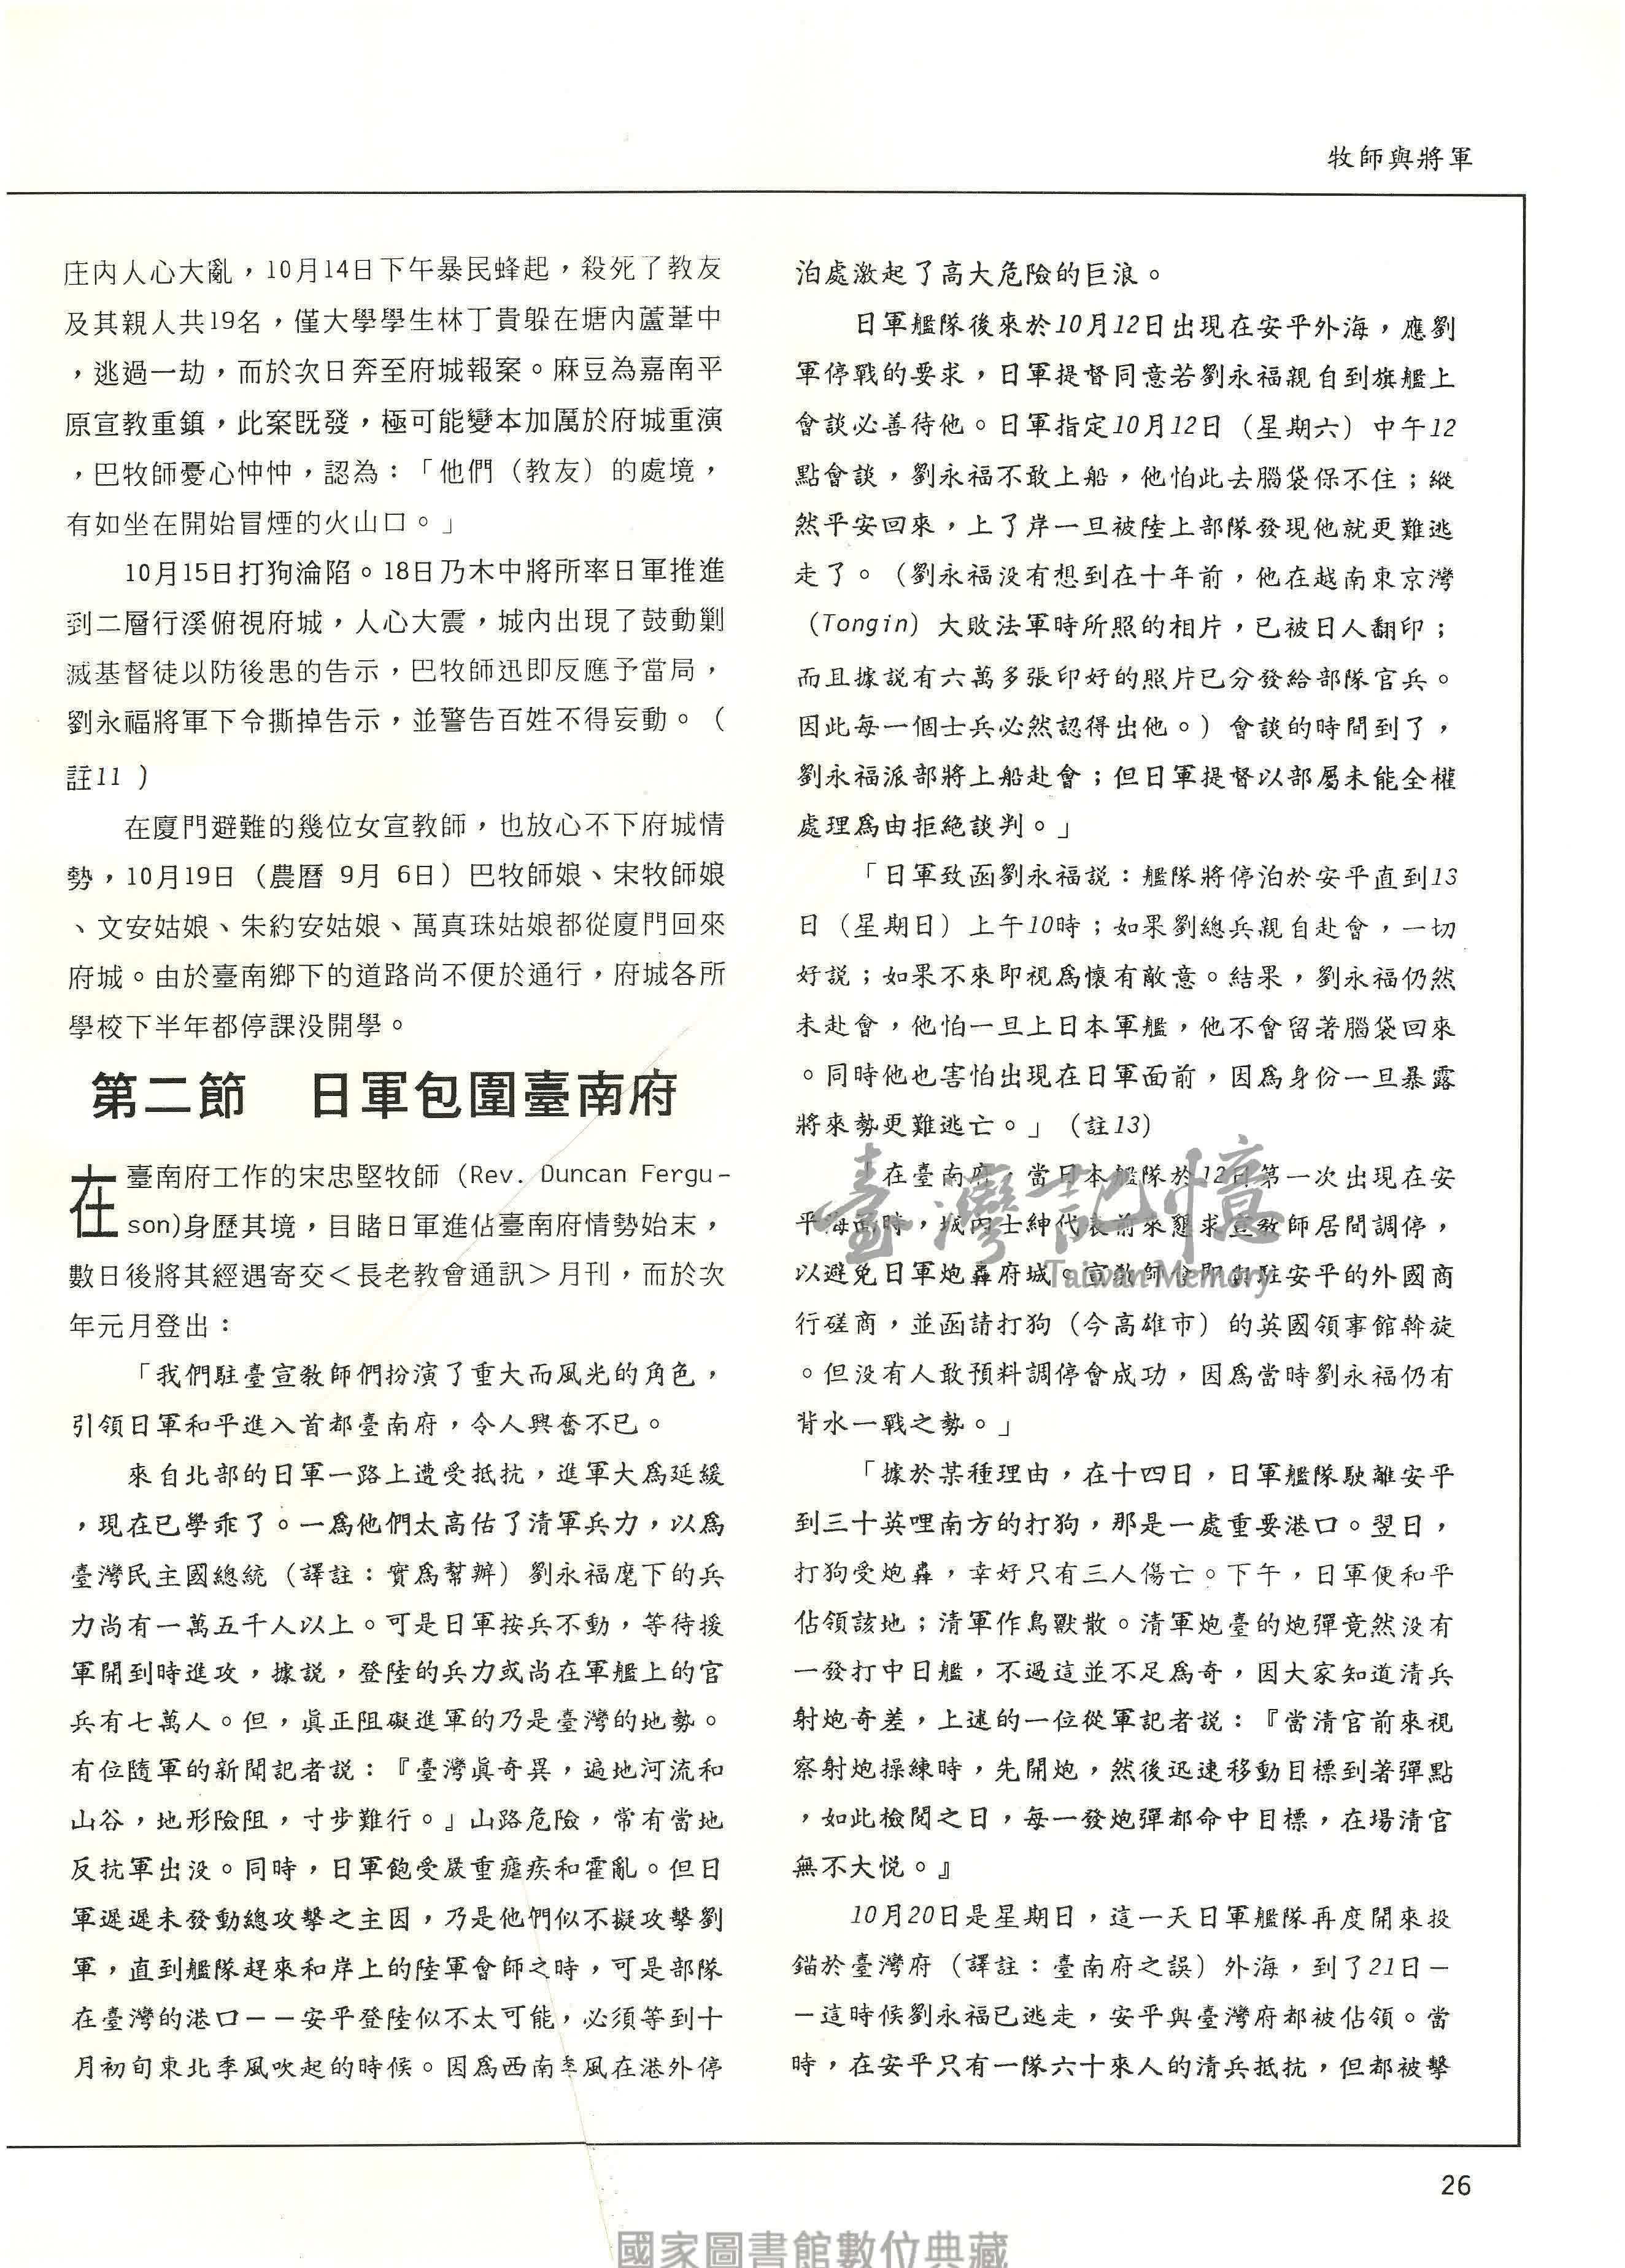 牧師與將軍
庄內人心大亂，10月14日下午暴民蜂起，殺死了教友
及其親人共19名，僅大學學生林丁貴躲在塘內蘆葦中
，逃過一劫，而於次日奔至府城報案。麻豆為嘉南平
原宣教重鎮，此案既發，極可能變本加厲於府城重演
，巴牧師憂心忡忡，認為：「他們（教友）的處境，
有如坐在開始冒煙的火山口。」
10月15日打狗淪陷。18日乃木中將所率日軍推進
到二層行溪俯視府城，人心大震，城內出現了鼓動剿
滅基督徒以防後患的告示，巴牧師迅即反應予當局，
劉永福將軍下令撕掉告示，並警告百姓不得妄動。（
註11 ）
在廈門避難的幾位女宣教師，也放心不下府城情
勢，10月19日（農曆 9月 6日）巴牧師娘、宋牧師娘
、文安姑娘、朱約安姑娘、萬真珠姑娘都從廈門回來
府城。由於臺南鄉下的道路尚不便於通行，府城各所
學校下半年都停課没開學。
第二節　日軍包圍臺南府
在臺南府工作的宋忠堅牧師（Rev. Duncan Fergu-
son)身歷其境，目睹日軍進佔臺南府情勢始末，
數日後將其經遇寄交＜長老教會通訊＞月刊，而於次
年元月登出：
「我們駐臺宣教師們扮演了重大而風光的角色，
引領日軍和平進入首都臺南府，令人興奮不已。
來自北部的日軍一路上遭受抵抗，進軍大爲延緩
，現在已學乖了。一爲他們太高估了清軍兵力，以爲
臺灣民主國總統（譯註：實爲幫辦）劉永福麾下的兵
力尚有一萬五千人以上。可是日軍按兵不動，等待援
軍開到時進攻，據説，登陸的兵力或尚在軍艦上的官
兵有七萬人。但，眞正阻礙進軍的乃是臺灣的地勢。
有位隨軍的新聞記者説：『臺灣眞奇異，遍地河流和
山谷，地形險阻，寸步難行。』山路危險，常有當地
反抗軍出没。同時，日軍飽受嚴重瘧疾和霍亂。但日
軍遲遲未發動總攻擊之主因，乃是他們似不擬攻擊劉
軍，直到艦隊趕來和岸上的陸軍會師之時，可是部隊
在臺灣的港口－－安平登陸似不太可能，必須等到十
月初旬東北季風吹起的時候。因爲西南季風在港外停
泊處激起了高大危險的巨浪。
日軍艦隊後來於10月12日出現在安平外海，應劉
軍停戰的要求，日軍提督同意若劉永福親自到旗艦上
會談必善待他。日軍指定10月12日（星期六）中午12
點會談，劉永福不敢上船，他怕此去腦袋保不住；縱
然平安回來，上了岸一旦被陸上部隊發現他就更難逃
走了。（劉永福没有想到在十年前，他在越南東京灣
（Tongin）大敗法軍時所照的相片，已被日人翻印；
而且據説有六萬多張印好的照片已分發給部隊官兵。
因此每一個士兵必然認得出他。）會談的時間到了，
劉永福派部將上船赴會；但日軍提督以部屬未能全權
處理爲由拒絶談判。」
「日軍致函劉永福説：艦隊將停泊於安平直到13
日（星期日）上午10時；如果劉總兵親自赴會，一切
好説；如果不來即視爲懷有敵意。結果，劉永福仍然
未赴會，他怕一旦上日本軍艦，他不會留著腦袋回來
。同時他也害怕出現在日軍面前，因爲身份一旦暴露
將來勢更難逃亡。」（註13）
「在臺南府，當日本艦隊於12日第一次出現在安
平海面時，城內士紳代表前來懇求宣教師居間調停，
以避免日軍炮轟府城。宣教師會即與駐安平的外國商
行磋商，並函請打狗（今高雄市）的英國領事館斡旋
。但没有人敢預料調停會成功，因爲當時劉永福仍有
背水一戰之勢。」
「據於某種理由，在十四日，日軍艦隊駛離安平
到三十英哩南方的打狗，那是一處重要港口。翌日，
打狗受炮轟，幸好只有三人傷亡。下午，日軍便和平
佔領該地；清軍作鳥獸散。清軍炮臺的炮彈竟然没有
一發打中日艦，不過這並不足爲奇，因大家知道清兵
射炮奇差，上述的一位從軍記者説：『當清官前來視
察射炮操練時，先開炮，然後迅速移動目標到著彈點
，如此檢閲之日，每一發炮彈都命中目標，在場清官
無不大悦。』
10月20日是星期日，這一天日軍艦隊再度開來投
錨於臺灣府（譯註：臺南府之誤）外海，到了21日－
－這時候劉永福已逃走，安平與臺灣府都被佔領。當
時，在安平只有一隊六十來人的清兵抵抗，但都被擊
臺灣記憶
Taiwan Memory
26
國家圖書館數位典藏